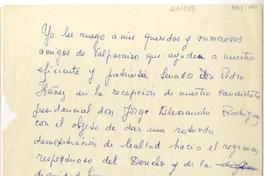 Yo les ruego a mis queridos y numerosos
amigos de Valparaíso que ayuden a nuestro
eficiente y patriota Senador don Pedro
Ibáñez en la recepción de nuestro candidato
presidencial don Jorge Alessandri Rodríguez
con el objeto de dar una rotunda
demostración de lealtad hacia el régimen
respetuoso del Derecho y de la
dignidad